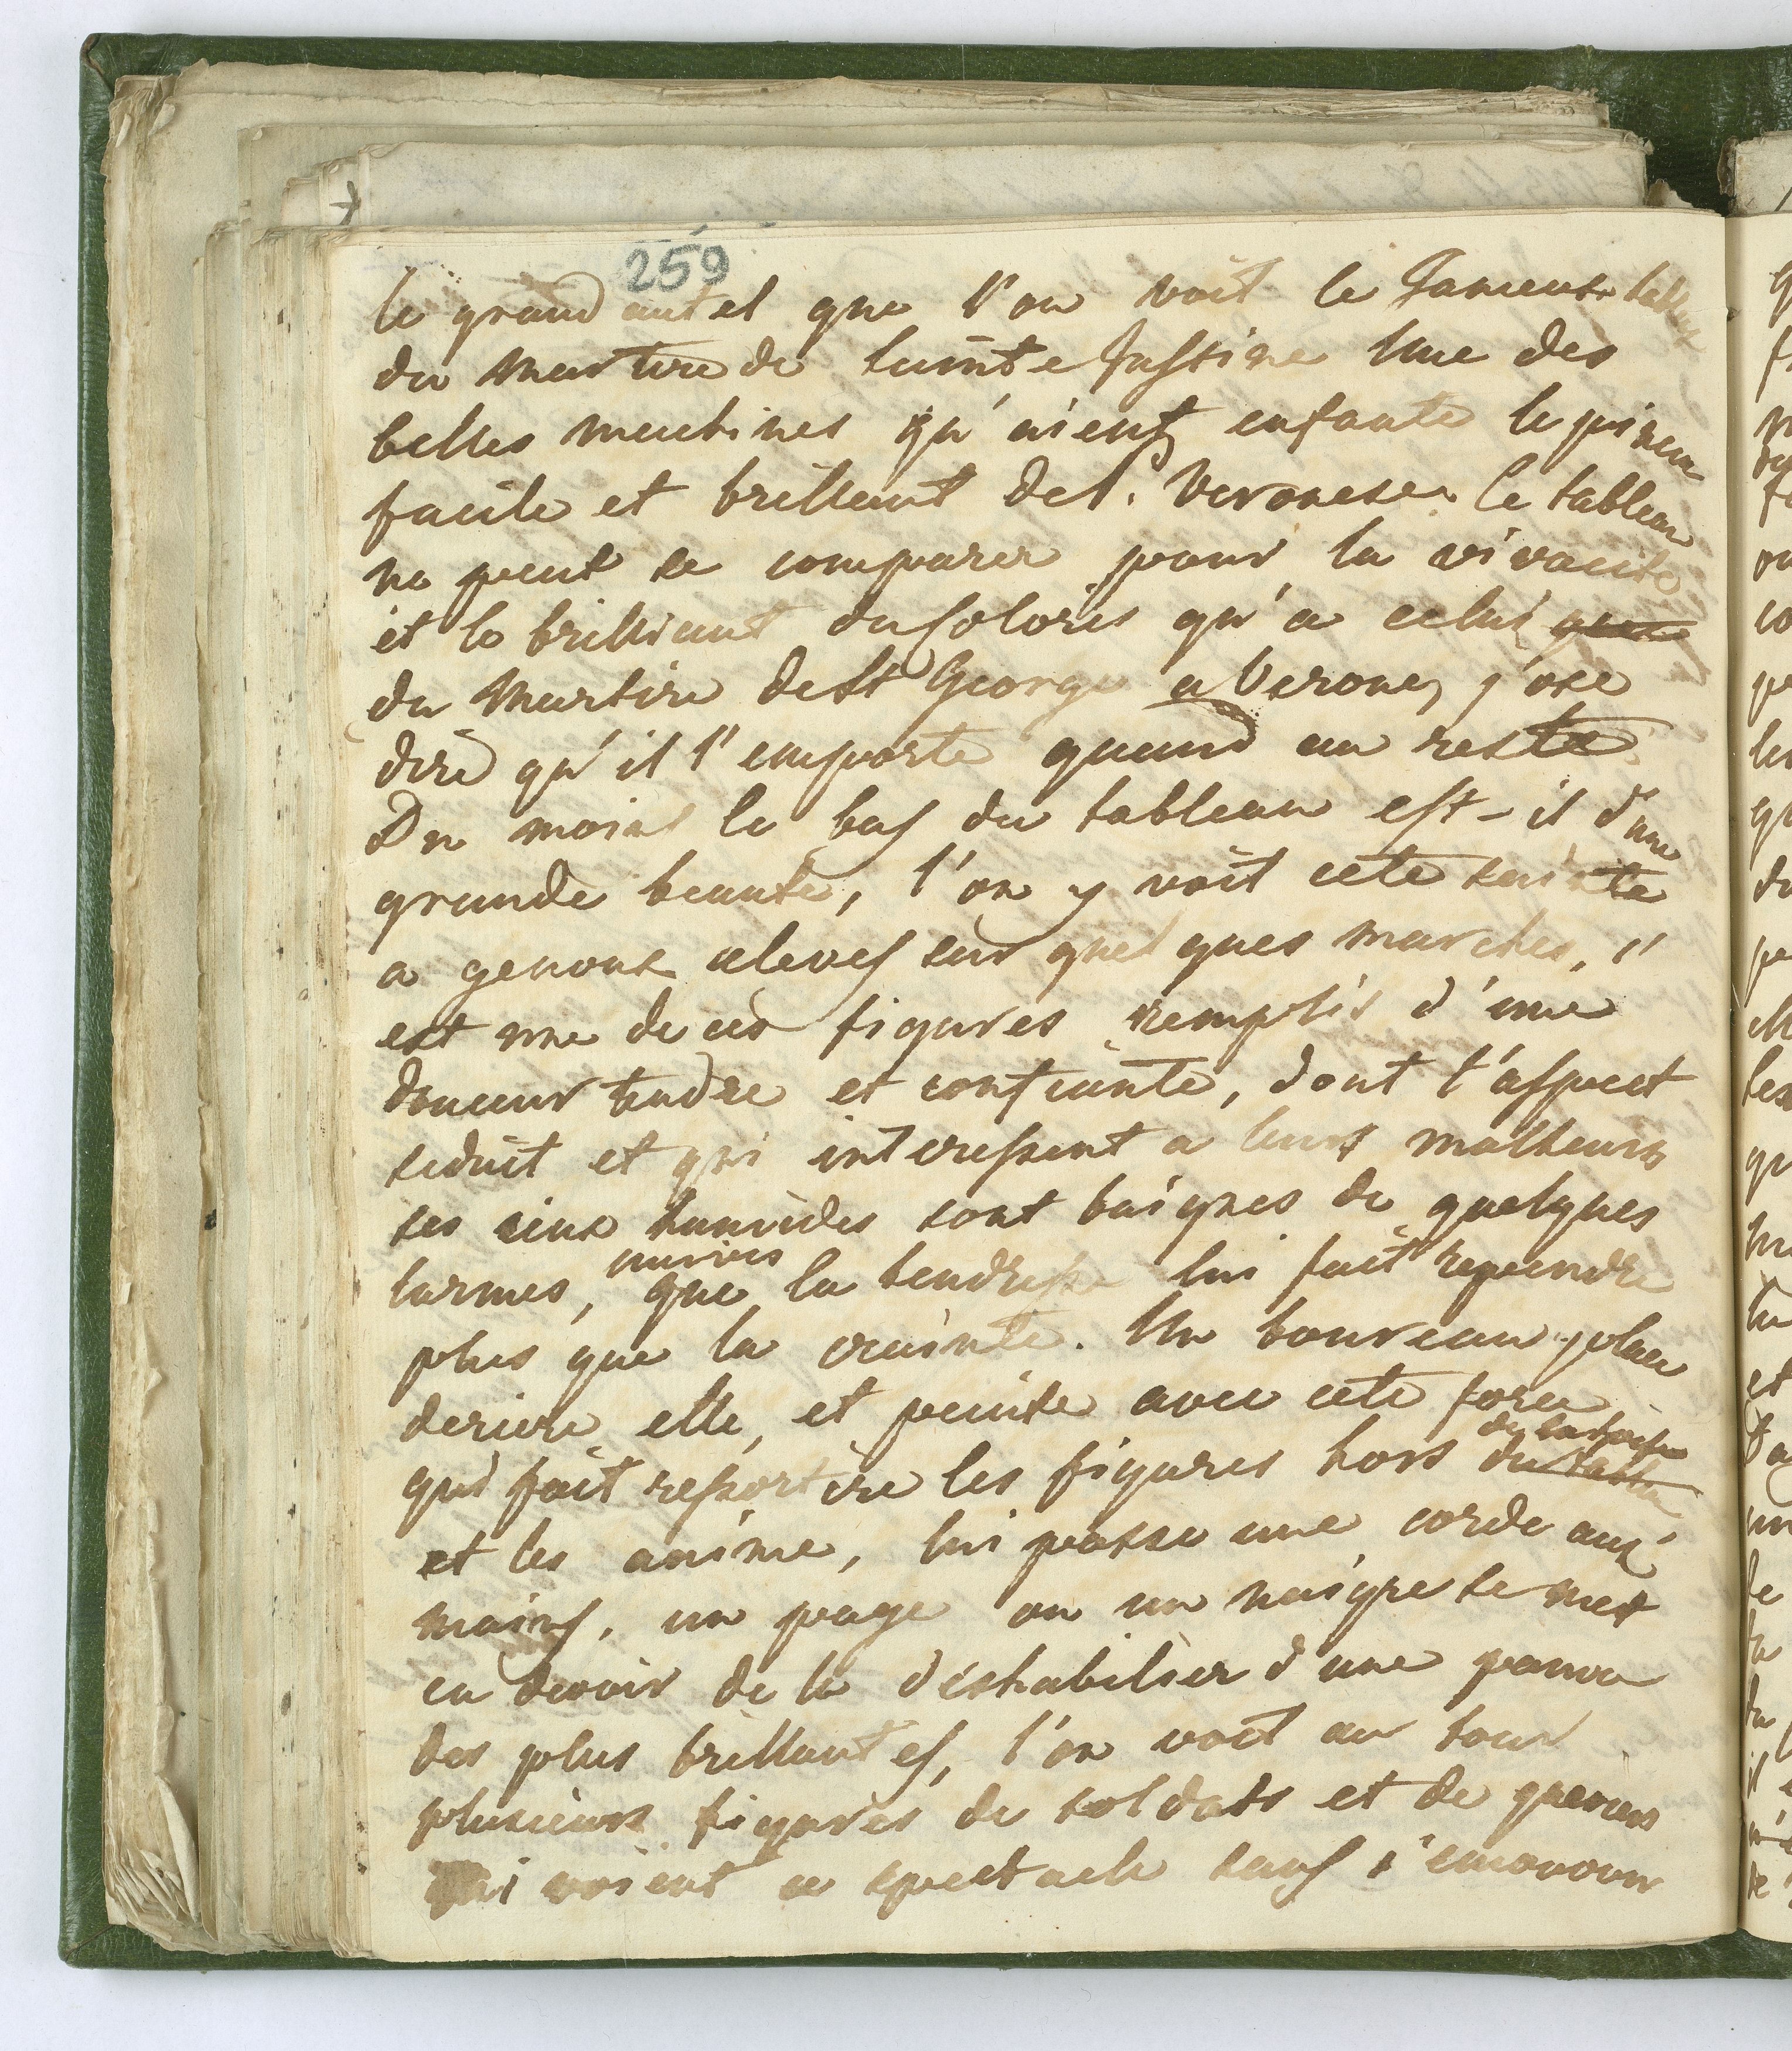 259
le grand autel que l'on voit le fameux tableau
du martire de sainte Justine Une des
belles machines qu'aient enfanté le pinceau
facile et brillant de P. Veronese. Ce tableau
ne peut se comparer pour la vivacité
et le brilliant du Coloris qu'a celui
du Martire de St George a Verone, j'ose
dire qu'il l'emporte quand au reste
Du moins le bas du tableau est-il d'une
grande beauté, l'on y voit cete sainte
a genoux elevés sur quel ques marches, s'
est une de ces figures remplis d'une
douceur tendre et confiante, dont l'aspect
seduit et qui interessent a leurs malheurs
ses ieux humides sont baignes de quelques
larmes, que la tendresse lui fait repeendre
plus que la crainte. Un boureau placé
deriere elle, et peinte avec cete force
qui fait ressortire les figures hors de la toile du tableau
et les anime, lui passe une corde aux
mains, un page ou un naigre se met
en devoir de la déshabilier d'une parure
des plus brillantes, l'on voit au tour
plusieurs figures de soldats et de gueriers
qui voient ce spectacle sans s'emouvoir